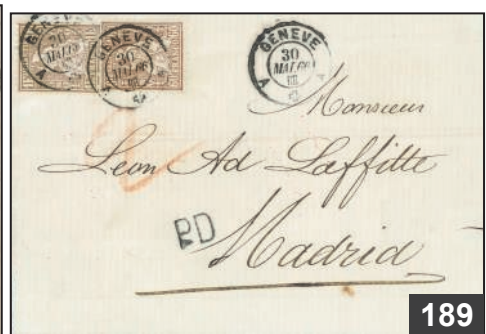 GENÈVE
30
MAI.66
III
A
GENÈVE
30
MAI.66
III
A
GENÈVE
30
MAI.66
III
A
Monsieur
Leon Ad Laffitte
PD
Madrid
189